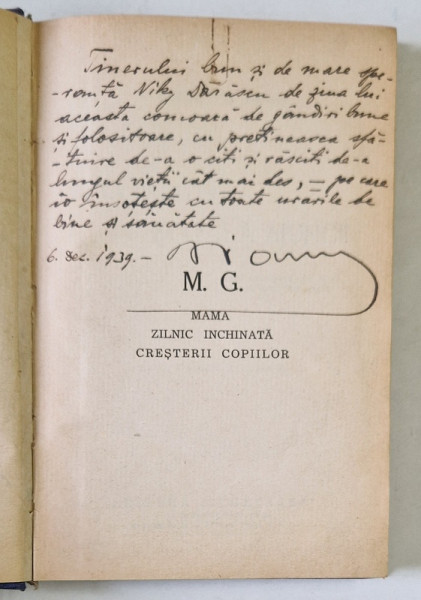 Tinerului bun și de mare spe-
ranță Niky Dărăscu de ziua lui
această comoară de gândiri bune
și folositoare, cu prețineasca sfă-
tuire de-a o citi și răsciti de-a
lungul vieții cât mai des, — pe care
io însoțește cu toate urările de
bine și sănătate
6. Dec. 1939. —
M. G.
MAMA
ZILNIC INCHINATĂ
CREȘTERII COPIILOR